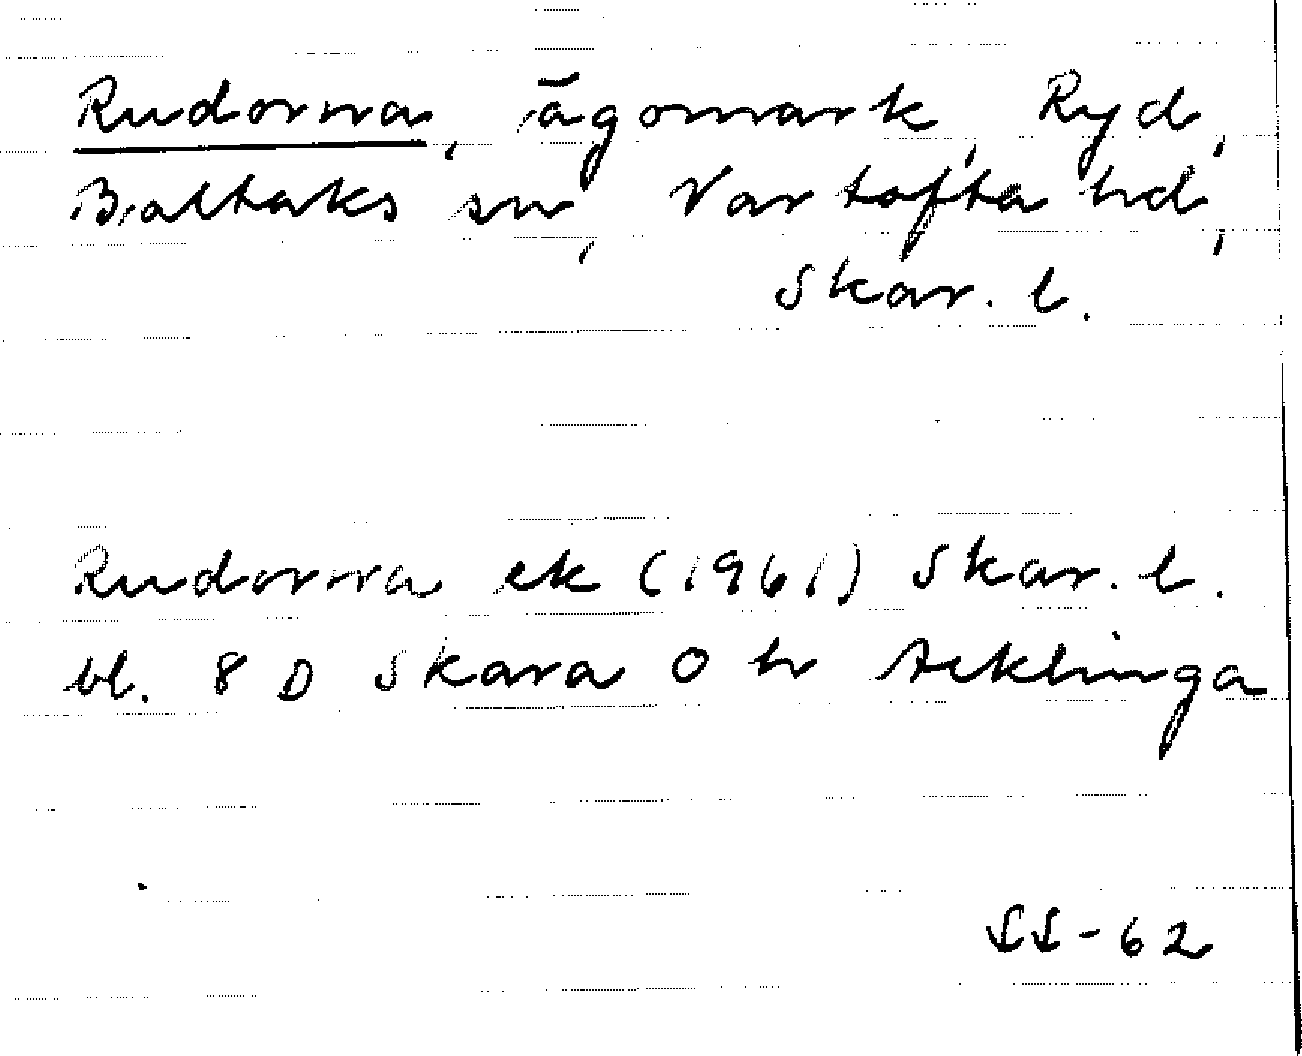 Rudorna, ägomark, Ryd,
Baltaks sn, Vartofta hd,
Skar. l.
Rudorna ek (1961) Skar. l.
bl. 8 D Skara O h Acklinga
SS-62